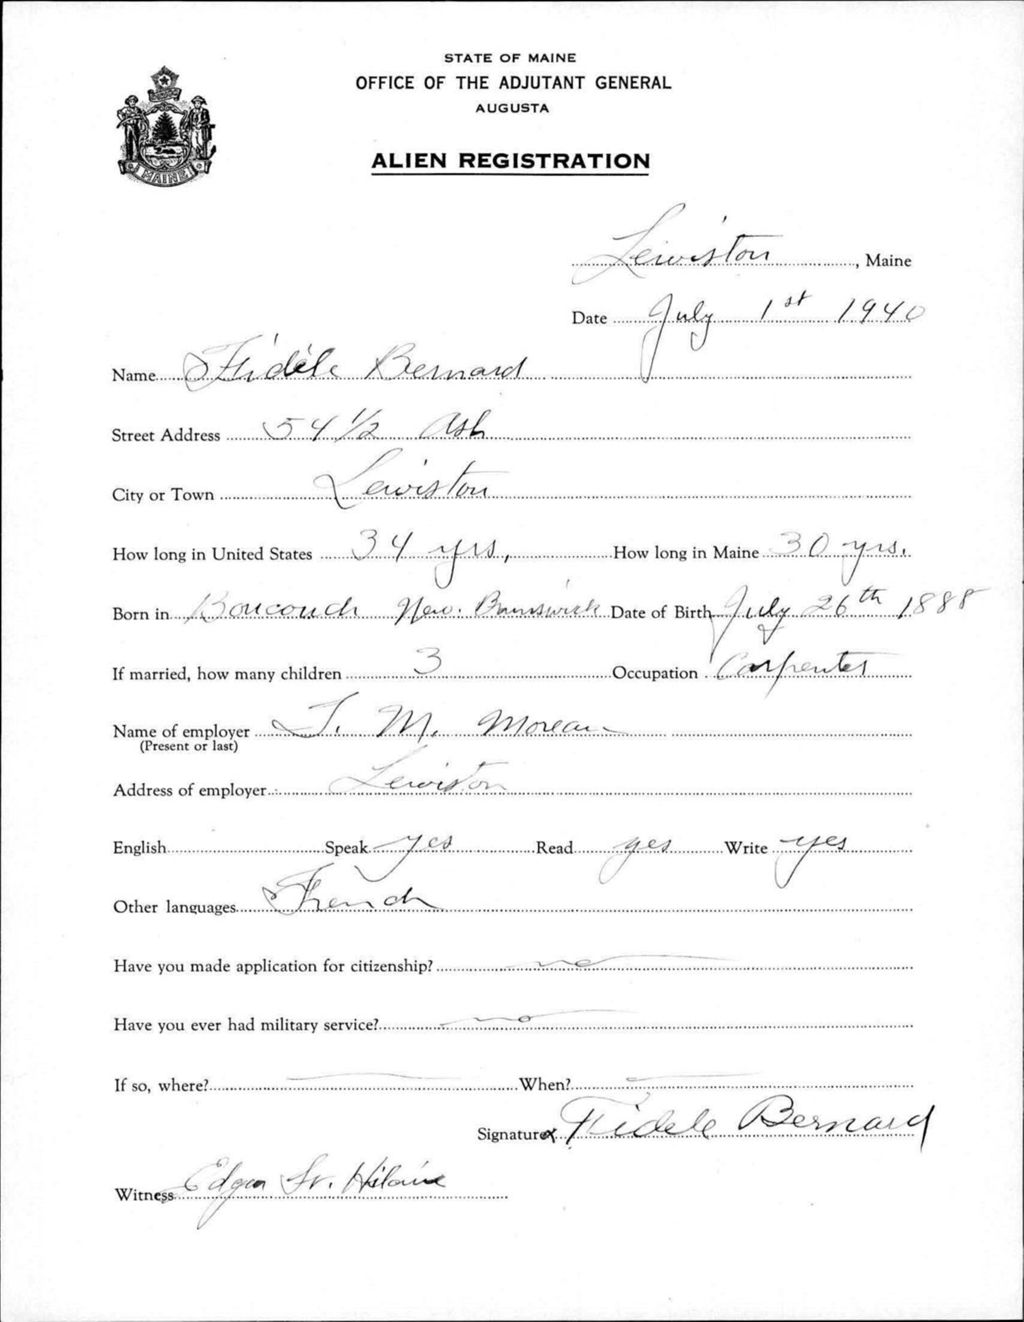 STATE OF MAINE
OFFICE OF THE ADJUTANT GENERAL
AUGUSTA
ALIEN REGISTRATION
MAINE
Lewiston, Maine
Date July 1st 1940
Name Fidéle Bernard
Street Address 54 1/2 Ash
City or Town Lewiston
How long in United States 34 yrs, How long in Maine 30 yrs.
Born in Boucouch New. Brunswick Date of Birth July 26th 1888
If married, how many children 3 Occupation Carpenter
Name of employer T. M. Moreau
(Present or last)
Address of employer Lewiston
English Speak yes Read yes Write yes
Other languages French
Have you made application for citizenship? no
Have you ever had military service? no
If so, where? When?
Signature x Fidele Bernard
Witness Edgar St. Hilaire